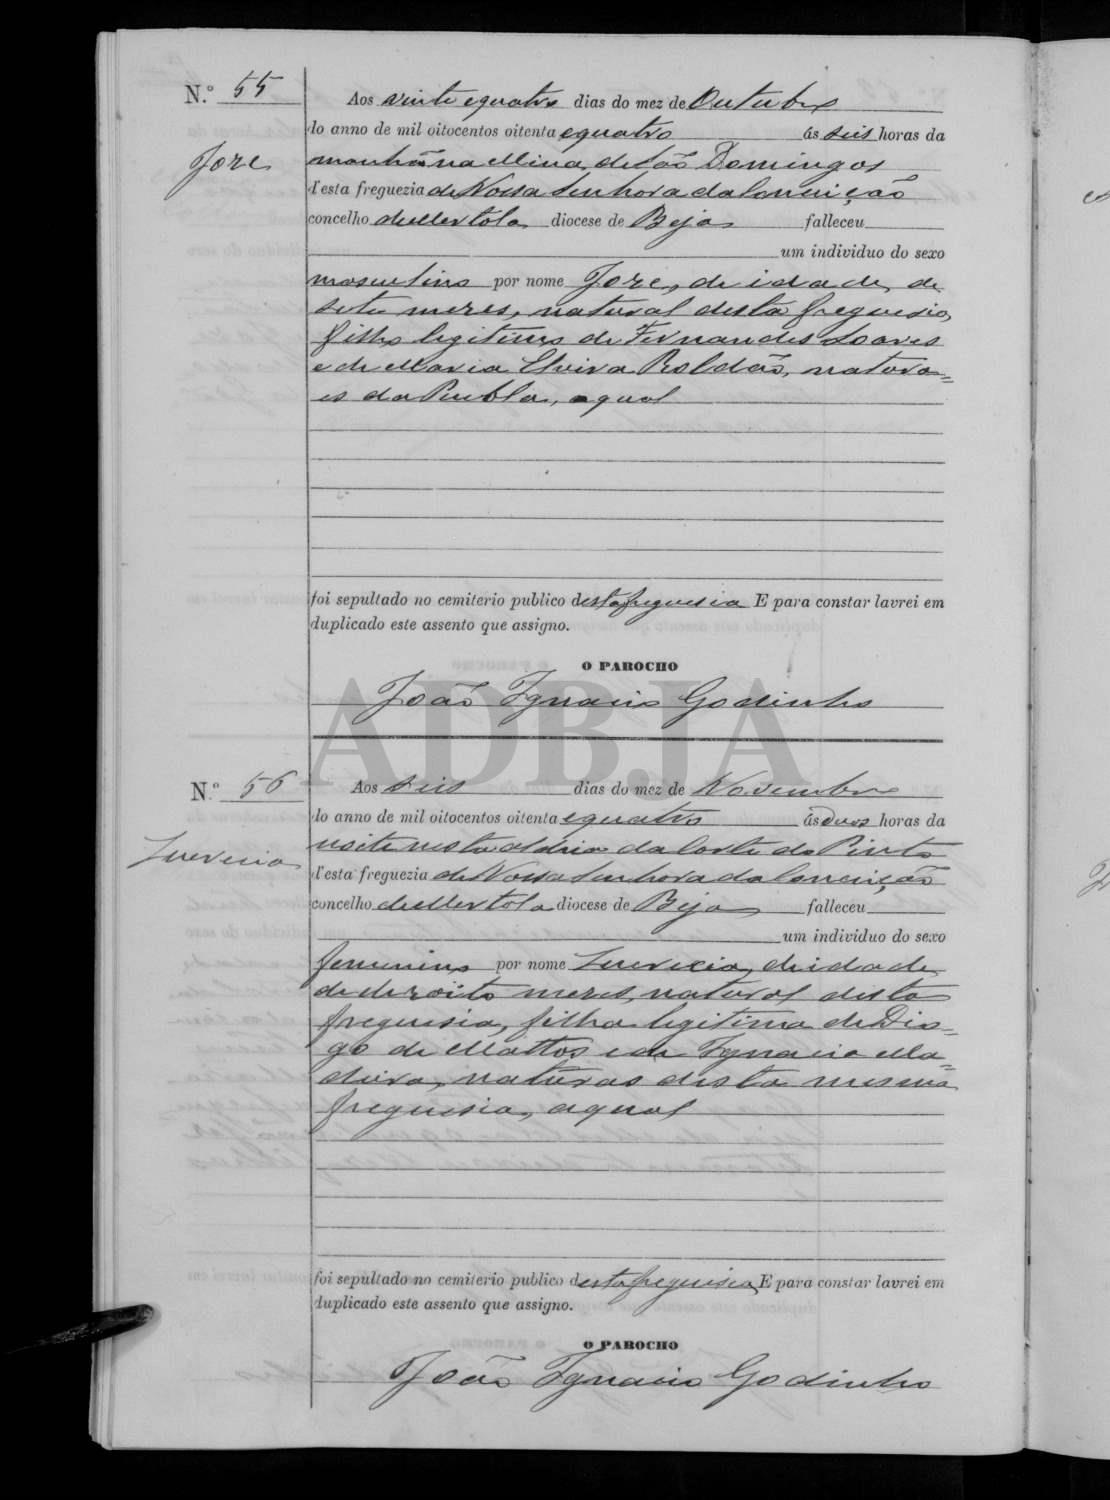 N.º 55
Joze
Aos vinte equatro dias do mez de Outubro
do anno de mil oitocentos oitenta equatro ás seis horas da
manhã na Mina de São Domingos
d'esta freguezia de Nossa Senhora da Conceição
concelho de Mertola diocese de Beja falleceu
um individuo do sexo
masculino por nome Joze, de idade de
sete mezes, natural desta freguesia,
filho legitimo de Fernandes Soares
e de Maria Elvira Roldão, natura=
es da Puebla, o qual
foi sepultado no cemiterio publico desta freguesia E para constar lavrei em
duplicado este assento que assigno.
O PAROCHO
João Ignacio Godinho
ADBJA
N.º 56
Lucrecia
Aos seis dias do mez de Novembro
do anno de mil oitocentos oitenta equatro ás Duas horas da
noite nesta aldeia da Corte do Pinto
d'esta freguezia de Nossa Senhora da Conceição
concelho de Mertola diocese de Beja falleceu
um individuo do sexo
femenino por nome Lucrecia, de idade
de dezoito mezes, natural desta
freguesia, filha legitima de Dio=
go de Mattos e de Ignacia Ma=
deira, naturaes desta mesma
freguesia, a qual
foi sepultado no cemiterio publico desta freguesia E para constar lavrei em
duplicado este assento que assigno.
O PAROCHO
João Ignacio Godinho